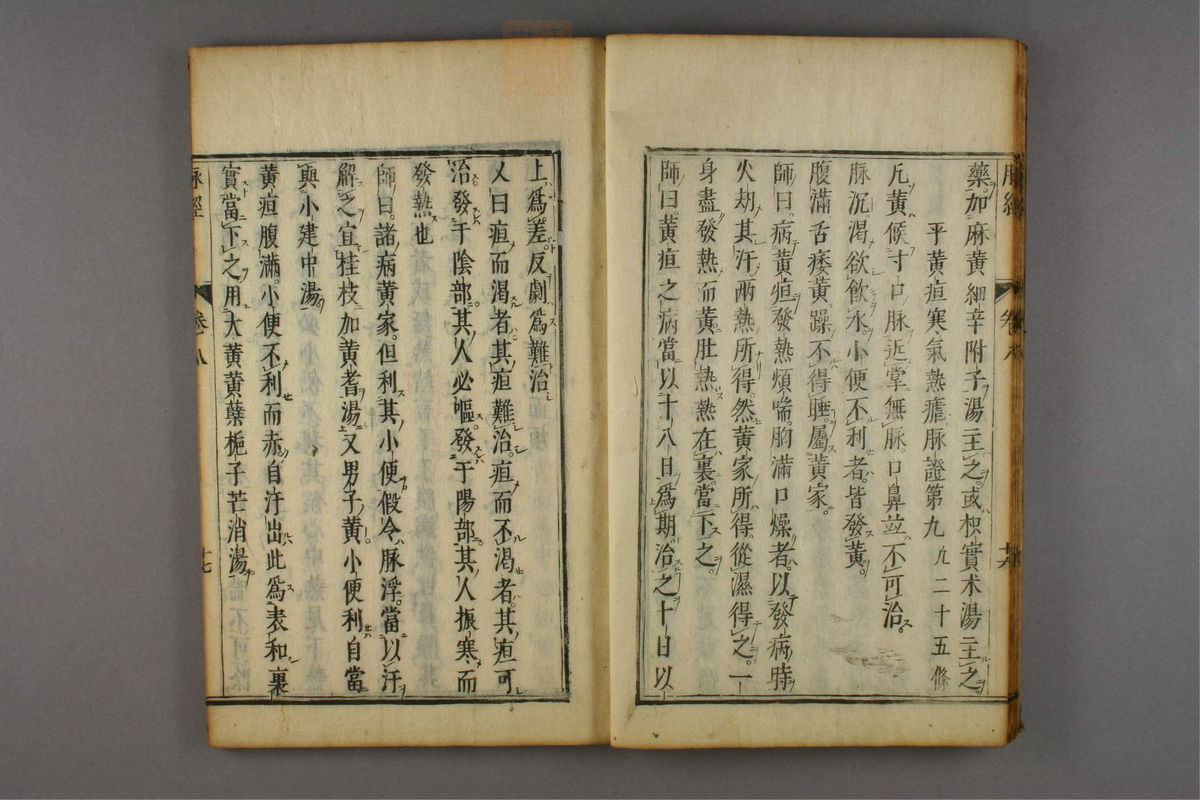 脉經 卷八 十六
藥。加麻黄細辛附子湯主之或枳實术湯主之
平黄疸寒氣熱瘧脉證第九 凡二十五條
凡黄候寸口脉近掌無脉。口鼻並不可治。
脉沉渴欲飲水。小便不利者。皆發黄。
腹滿舌痿黄躁不得睡。屬黄家。
師曰。病黄疸發熱煩喘。胸滿口燥者。以發病時
火劫其汗。兩熱所得。然黄家所得。從濕得之。一
身盡發熱而黄。肚熱。熱在裏。當下之。
師曰。黄疸之病。當以十八日爲期。治之十日以
上爲差。反劇爲難治
又曰疸而渴者。其疸難治。疸而不渴者。其疸可
治發于陰部。其人必嘔。發于陽部。其人振寒而
發熱也
師曰。諸病黄家。但利其小便假令脉浮。當以汗
解之宜桂枝加黄耆湯又男子黄小便利自當
與小建中湯
黄疸腹滿。小便不利而赤。自汗出。此爲表和裏
實當下之用大黄黄蘗梔子芒消湯
脉經 卷八 十七